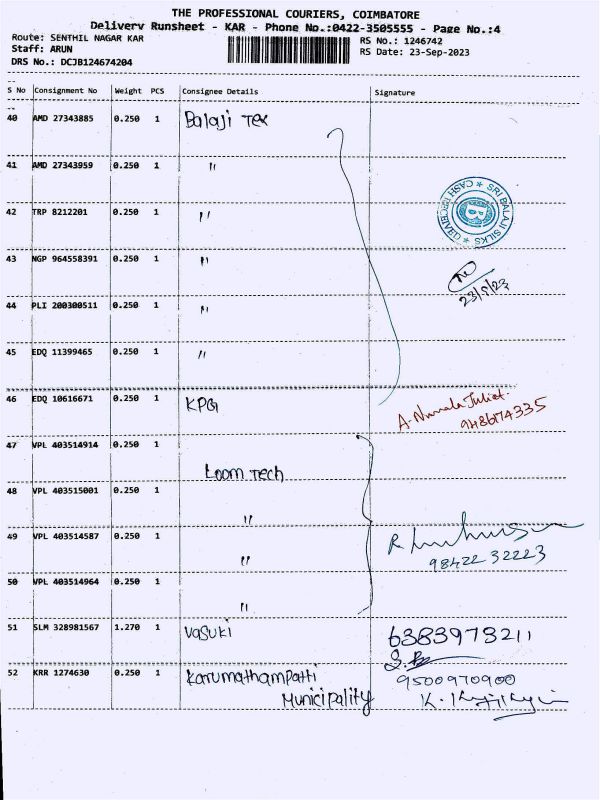 THE PROFESSIONAL COURIERS, COIMBATORE
Delivery Runsheet - KAR - Phone No.:0422-3505555 - Page No.:4
Route: SENTHIL NAGAR KAR
RS No.: 1246742
Staff: ARUN
RS Date: 23-Sep-2023
DRS No.: DCJB124674204
S No Consignment No Weight PCS Consignee Details Signature
40 AMD 27343885 0.250 1 Balaji Tex
41 AMD 27343959 0.250 1 "
42 TRP 8212201 0.250 1 "
SRI BALAJI SILKS * CASH RECEIVED *
43 NGP 964558391 0.250 1 "
23/9/23
44 PLI 200300511 0.250 1 "
45 EDQ 11399465 0.250 1 "
46 EDQ 10616671 0.250 1 KPG
A. Nirmala Juliet.
9486174335
47 VPL 403514914 0.250 1
Loom Tech
48 VPL 403515001 0.250 1
"
49 VPL 403514587 0.250 1
R
98422 32223
"
50 VPL 403514964 0.250 1
"
51 SLM 328981567 1.270 1 Vasuki 6383973211
52 KRR 1274630 0.250 1 Karumathampatti 9500970900
Municipality K.